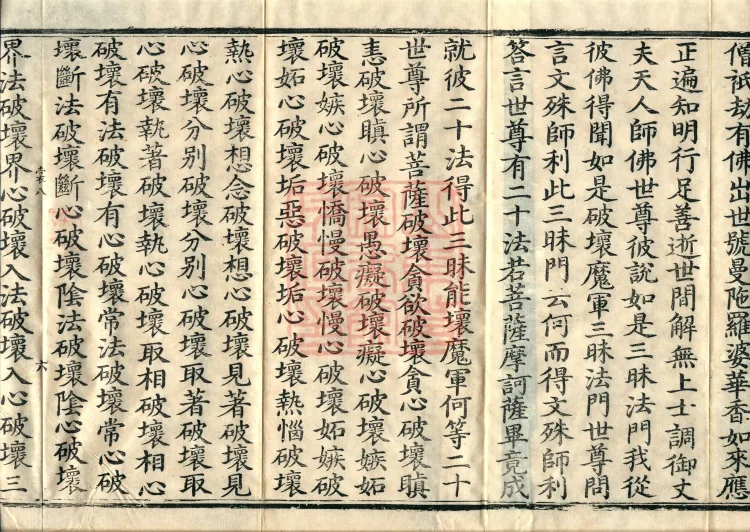 僧祇劫有佛出世號曼陁羅婆華香如來應
正遍知明行足善逝世間解無上士調御丈
夫天人師佛世尊彼說如是三昧法門我從
彼佛得聞如是破壞魔軍三昧法門世尊問
言文殊師利此三昧門云何而得文殊師利
荅言世尊有二十法若菩薩摩訶薩畢竟成
就彼二十法得此三昧能壞魔軍何等二十
世尊所謂菩薩破壞貪欲破壞貪心破壞瞋
恚破壞瞋心破壞愚癡破壞癡心破壞嫉妬
破壞嫉心破壞憍慢破壞慢心破壞妬嫉破
壞妬心破壞垢惡破壞垢心破壞熱惱破壞
熱心破壞想念破壞想心破壞見著破壞見
心破壞分别破壞分别心破壞取著破壞取
心破壞執著破壞執心破壞取相破壞相心
破壞有法破壞有心破壞常法破壞常心破
壞斷法破壞斷心破壞陰法破壞陰心破壞
界法破壞界心破壞入法破壞入心破壞三
六